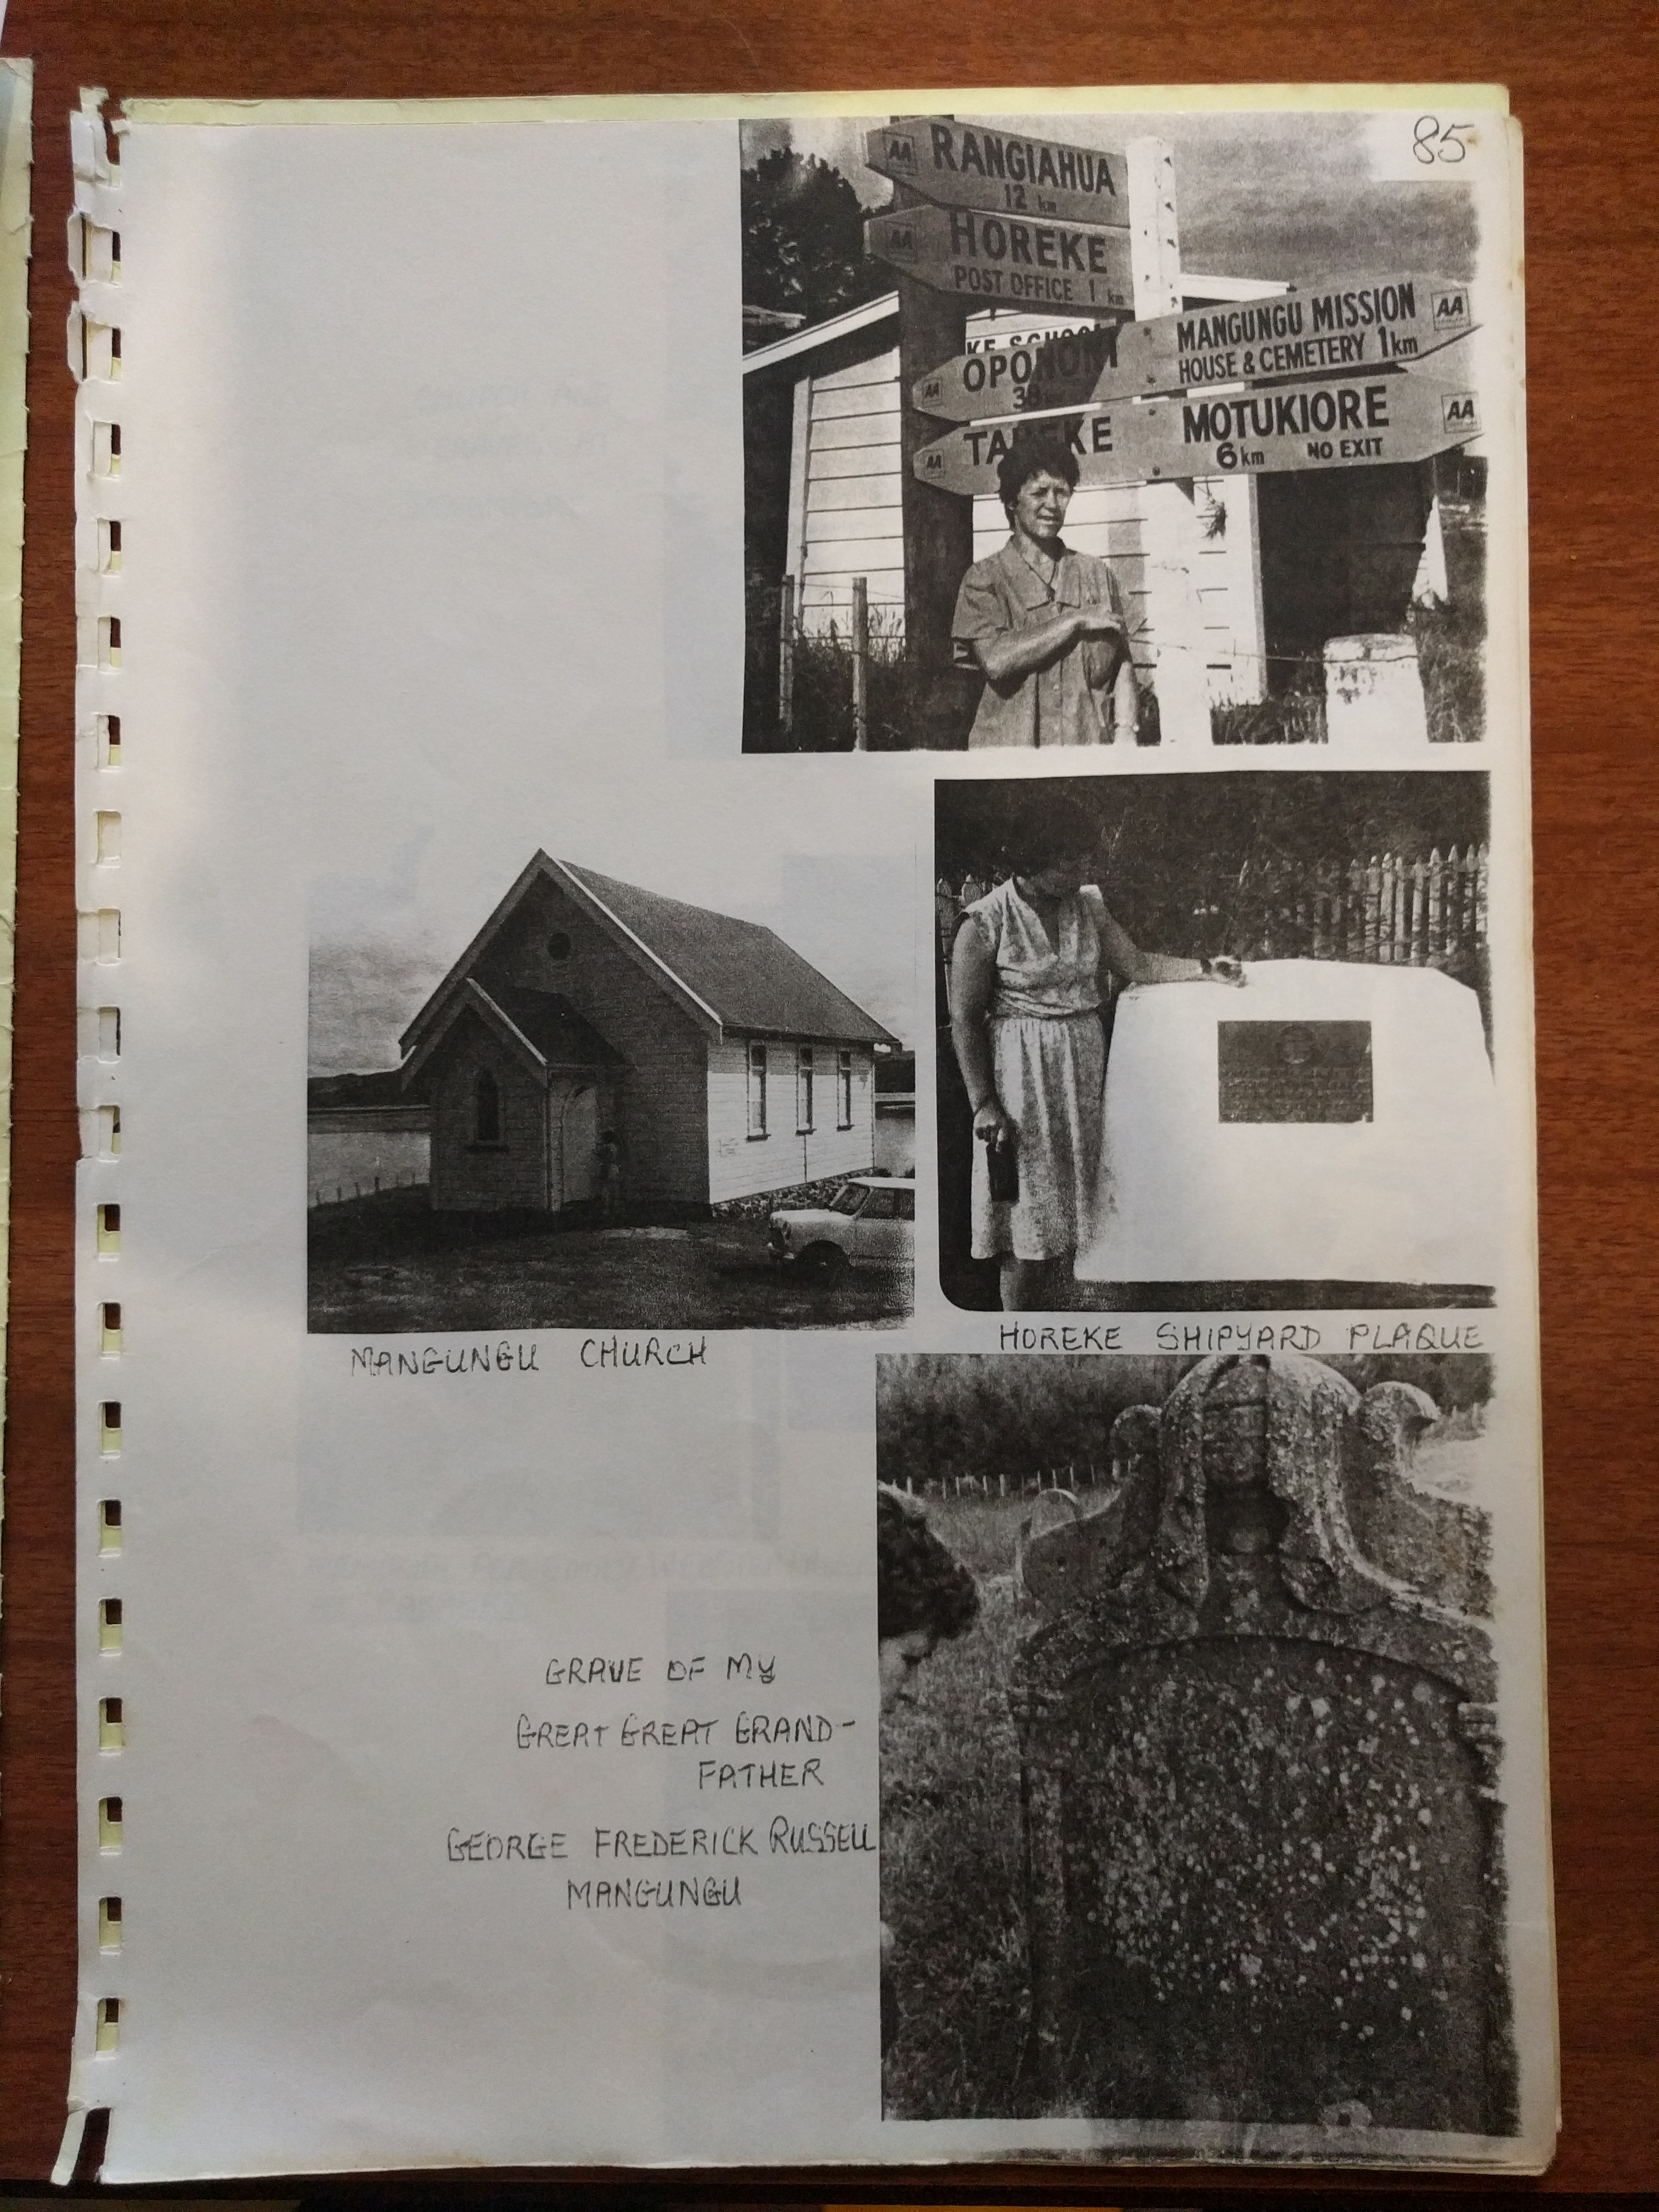 85
AA RANGIAHUA
12 km
AA HOREKE
POST OFFICE 1 km
KE SCHOOL
OPONONI
AA
MANGUNGU MISSION AA
HOUSE & CEMETERY 1km
TAHEKE
AA
MOTUKIORE AA
6km NO EXIT
MANGUNGU CHURCH
HOREKE SHIPYARD PLAQUE
GRAVE OF MY
GREAT GREAT GRAND-
FATHER
GEORGE FREDERICK RUSSELL
MANGUNGU